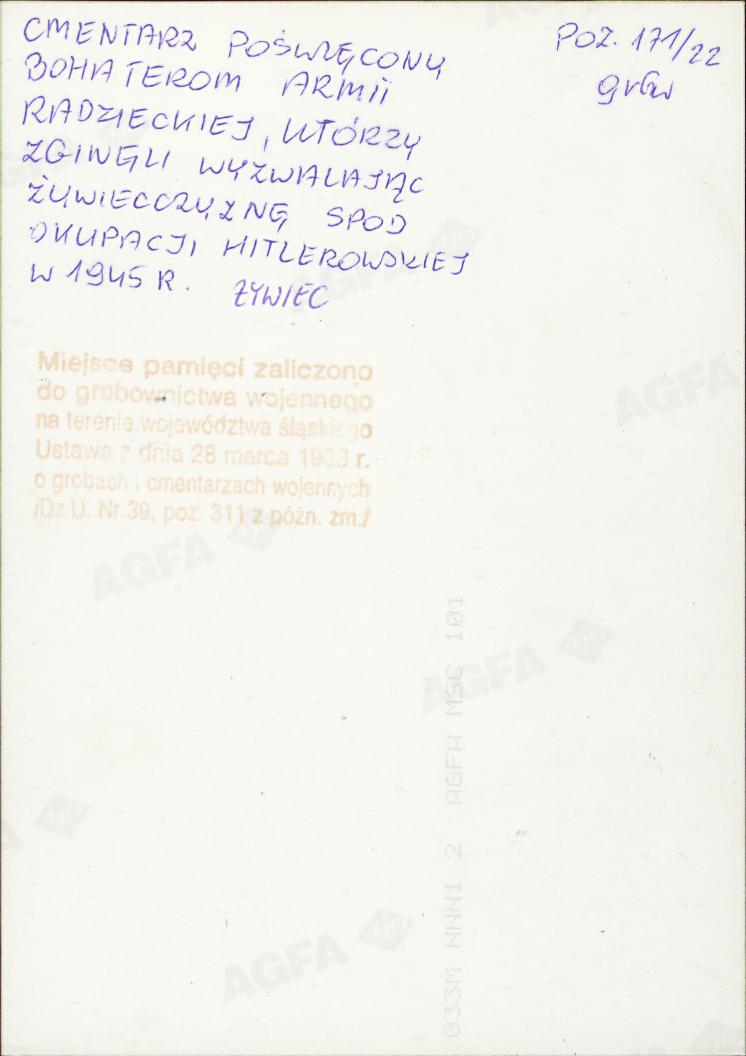 CMENTARZ POŚWIĘCONY
BOHATEROM ARMII
RADZIECKIEJ, KTÓRZY
ZGINĘLI WYZWALAJĄC
ŻYWIECCZYZNĘ SPOD
OKUPACJI HITLEROWSKIEJ
W 1945 R. ŻYWIEC
POZ. 171/22
Miejsce pamięci zaliczono
do grobownictwa wojennego
na terenie województwa śląskiego
Ustawa z dnia 28 marca 1933 r.
o grobach i cmentarzach wojennych
/Dz.U. Nr.39, poz. 311 z późn. zm./
AGFA
AGFA
AGFA
AGFA
AGFA
033M NNN1 2 AGFA MSC 101